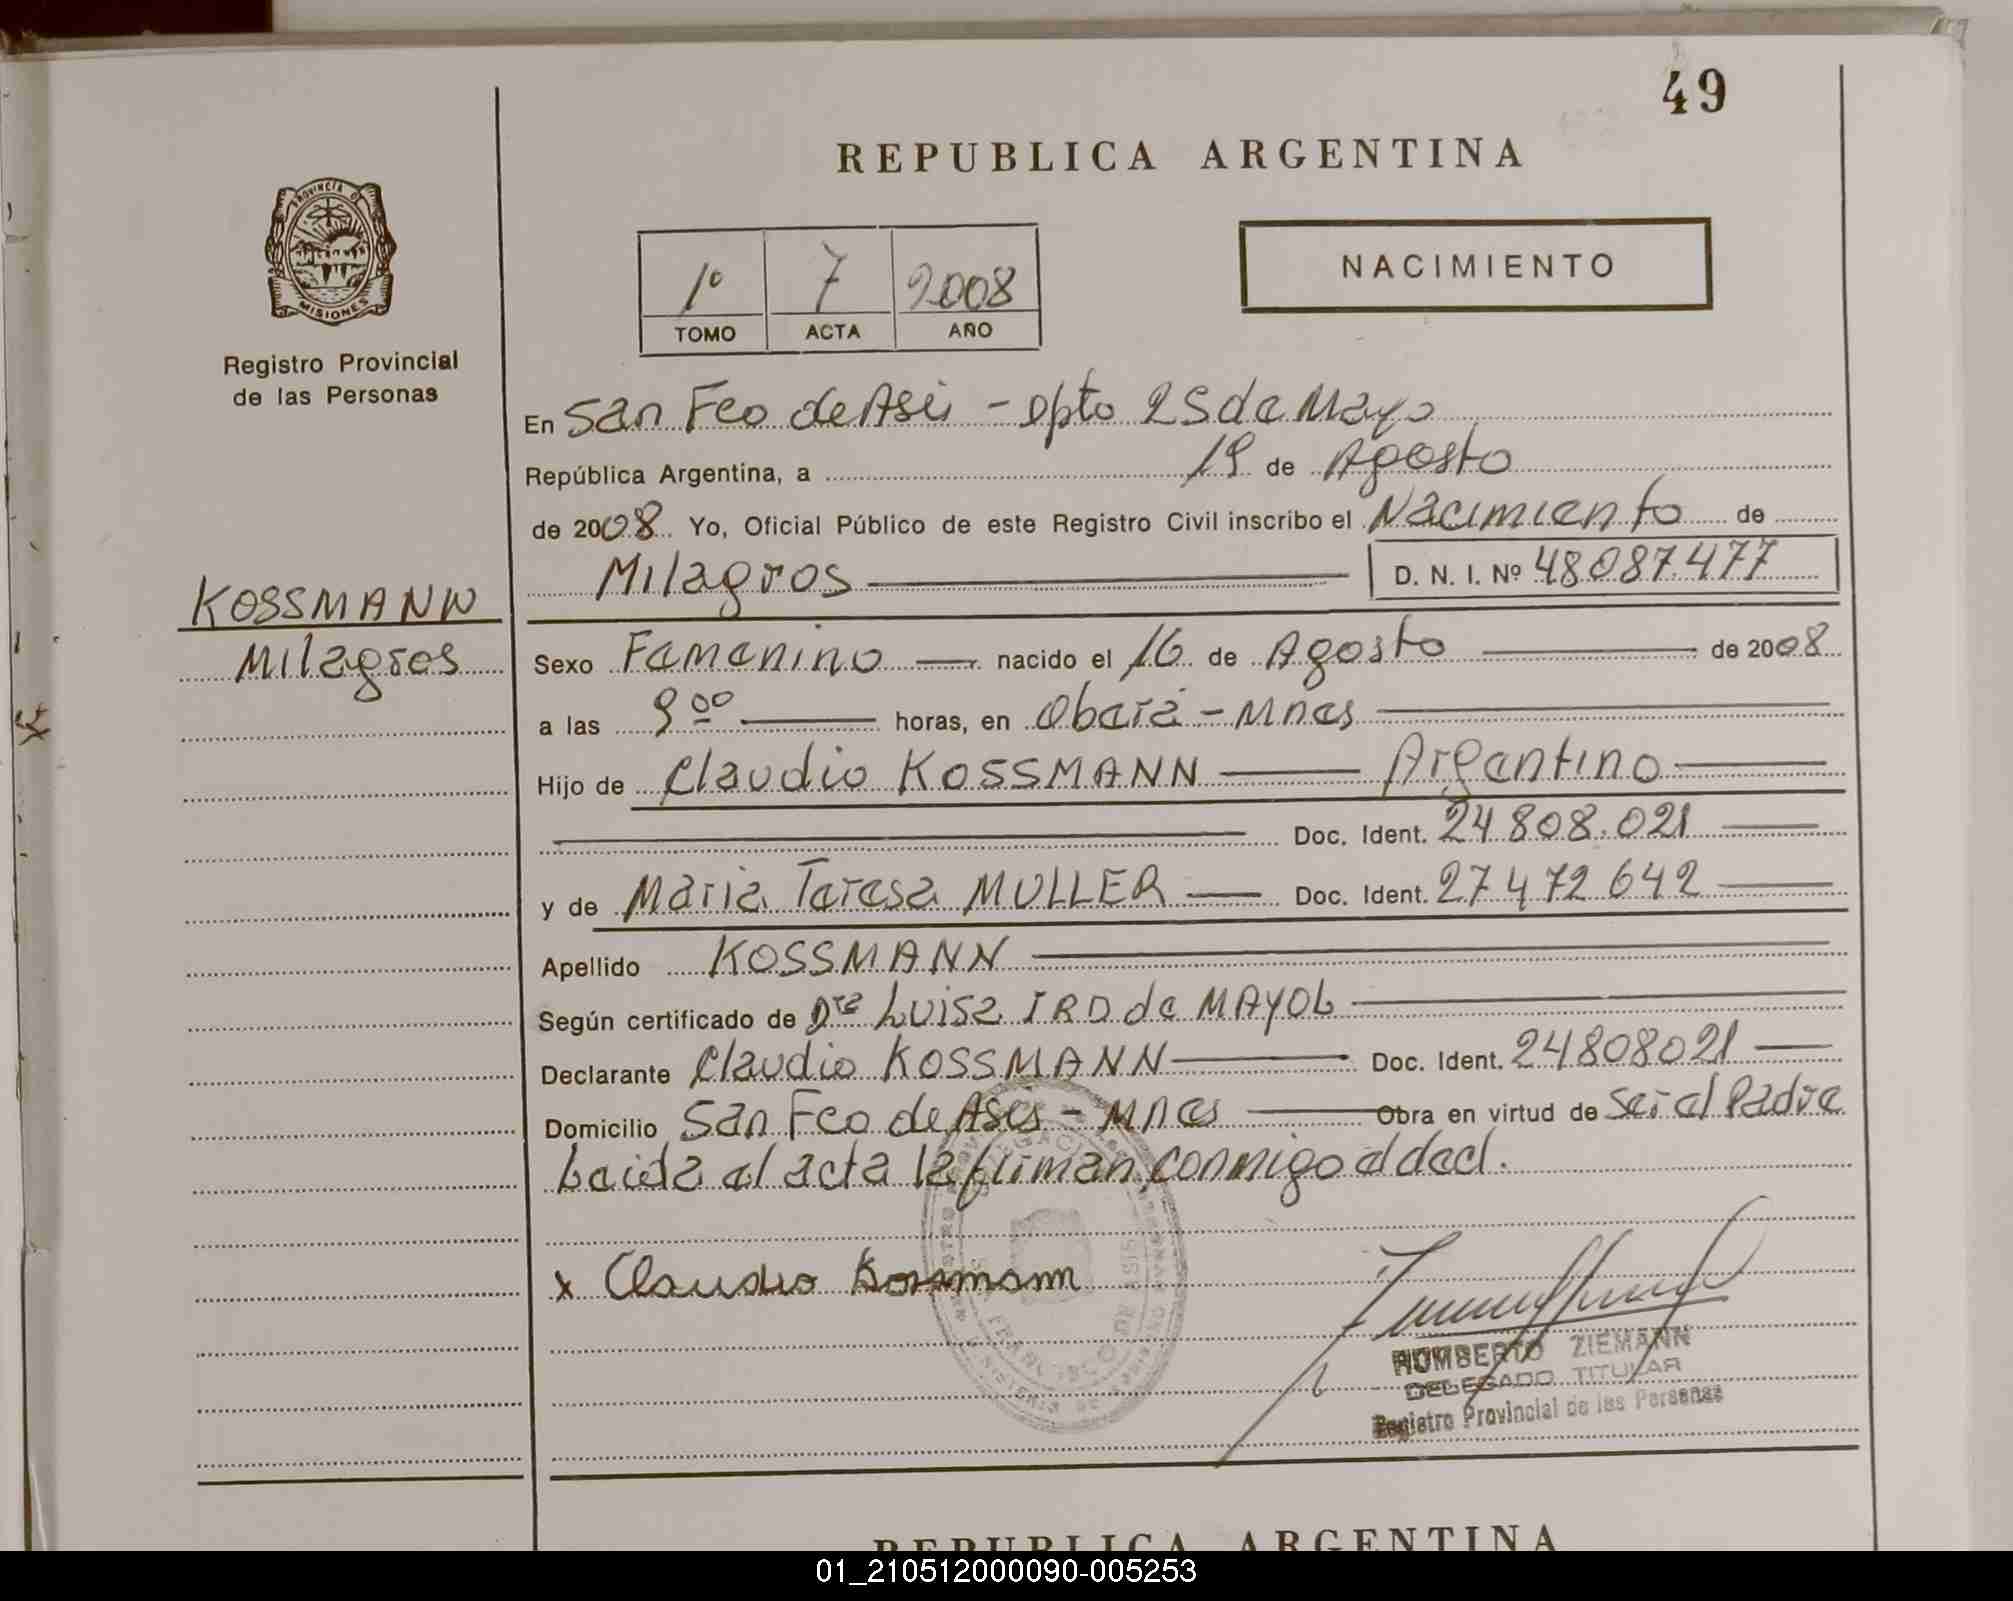 49
REPUBLICA ARGENTINA
PROVINCIA DE
MISIONES
Registro Provincial
de las Personas
1º 7 2008
TOMO ACTA AÑO
NACIMIENTO
En San Fco de Asis - Dpto 25 de Mayo
República Argentina, a 19 de Agosto
de 2008 Yo, Oficial Público de este Registro Civil inscribo el Nacimiento de
Milagros D. N. I. Nº 48087.477
KOSSMANN
Milagros
Sexo Femenino nacido el 16 de Agosto de 2008
a las 9 00 horas, en Oberá - Mnes
Hijo de Claudio KOSSMANN Argentino
Doc. Ident. 24 808.021
y de Maria Teresa MULLER Doc. Ident. 27 472 642
Apellido KOSSMANN
Según certificado de Dra Luisa IRO de MAYOL
Declarante Claudio KOSSMANN Doc. Ident. 24808021
Domicilio San Fco de Asis - Mnes Obra en virtud de Ser el Padre
Leida el acta la firman conmigo
x Claudio Kossmann
ROMBERTO ZIEMANN
DELEGADO TITULAR
Registro Provincial de las Personas
REPUBLICA ARGENTINA
01_210512000090-005253